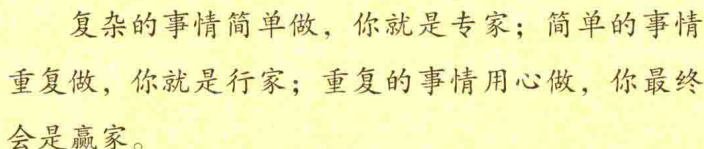 复杂的事情简单做，你就是专家；简单的事情
重复做，你就是行家；重复的事情用心做，你最终
会是赢家。